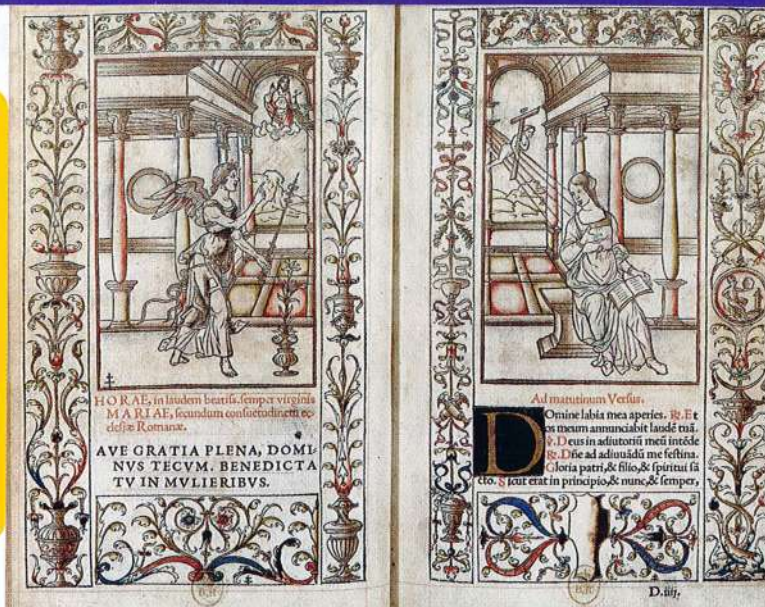 HORAE, in laudem beatiss. semper virginis
MARIAE, secundum consuetudinem ec
clesiæ Romanæ.
AVE GRATIA PLENA, DOMI-
NVS TECVM. BENEDICTA
TV IN MVLIERIBVS.
Ad matutinum Versus.
Domine labia mea aperies. ℟. Et
os meum annunciabit laudē tuā.
℣. Deus in adiutoriū meū intēde
℟. Dñe ad adiuuādū me festina.
Gloria patri, & filio, & spiritui sā
cto. Sicut erat in principio, & nunc, & semper,
D.iiij.